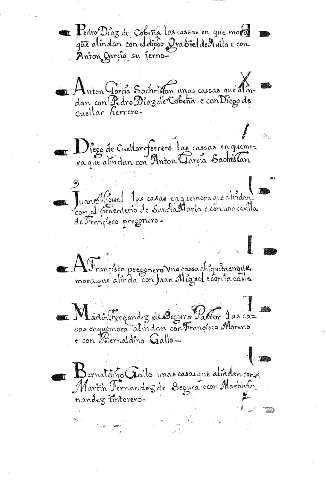 Pedro Díaz de Cobeña las cassas en que mora
que alindan con el dicho Grabiel de Auila e con
Anton Garcia su ierno
Anton Garcia Sachristan unas cassas que alin-
dan con Pedro Diaz de Cobeña e con Diego de
cuellar herrero
Diego de Cuellar ferrero las cassas en que mo-
ra que alindan con Anton Garcia Sachristan
Juan Miguel las casas en que mora que alindan
con el çimenterio de Sancta Maria e con una casilla
de Francisco pregonero
A Francisco pregonero una cassa chiquita en que
mora que alinda con Juan Miguel e con la calle
Martin Fernandez de Segura Pastor las ca-
sas en que mora alindan con Francisco Moreno
e con Bernaldino Gallo
Bernaldino Gallo unas casas que alindan con
Martin Fernandez de Segura e con Martin fer-
nandez tintorero